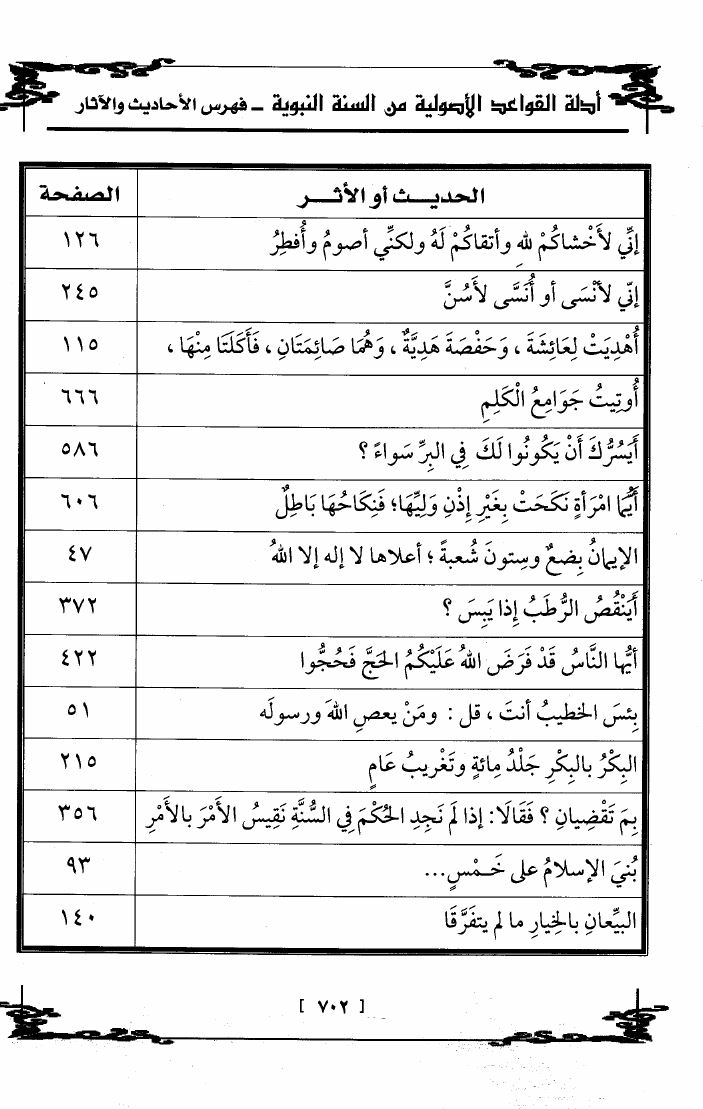 أدلة القواعد الأصولية من السنة النبوية ـ فهرس الأحاديث والآثار
الحديــث أو الأثــر الصفحة
إنِّي لأَخْشاكُمْ للهِ وأتقاكُمْ لَهُ ولكنِّي أصومُ وأُفطِرُ ١٢٦
إنّي لأنْسَى أو أُنَسَّى لأَسُنَّ ٢٤٥
أُهْدِيَتْ لِعَائِشَةَ ، وَحَفْصَةَ هَدِيَّةٌ ، وَهُمَا صَائِمَتَانِ ، فَأَكَلَتَا مِنْهَا ، ١١٥
أُوتِيتُ جَوَامِعُ الْكَلِمِ ٦٦٦
أَيَسُرُّكَ أَنْ يَكُونُوا لَكَ فِي البِرِّ سَواءً ؟ ٥٨٦
أَيُّما امْرَأةٍ نَكَحَتْ بِغَيْرِ إِذْنِ وَلِيِّهَا؛ فَنِكَاحُهَا بَاطِلٌ ٦٠٦
الإيمانُ بِضعٌ وستونَ شُعبةً ؛ أعلاها لا إله إلا اللهُ ٤٧
أَيَنْقُصُ الرُّطَبُ إذا يَبِسَ ؟ ٣٧٢
أيُّها النَّاسُ قَدْ فَرَضَ اللهُ عَلَيْكُمُ الحَجَّ فَحُجُّوا ٤٢٢
بِئسَ الخطيبُ أنتَ ، قل : ومَنْ يعصِ اللهَ ورسولَه ٥١
البِكْرُ بالبِكْرِ جَلْدُ مِائةٍ وتَغْريبُ عَامٍ ٢١٥
بِمَ تَقْضِيانِ ؟ فَقَالَا: إذا لَم نَجِدِ الحُكْمَ فِي السُّنَّةِ نَقِيسُ الأمْرَ بالأَمْرِ ٣٥٦
بُنيَ الإسلامُ على خَــمْسٍ... ٩٣
البيِّعانِ بالخِيارِ ما لم يتفَرَّقَا ١٤٠
[ ٧٠٢ ]